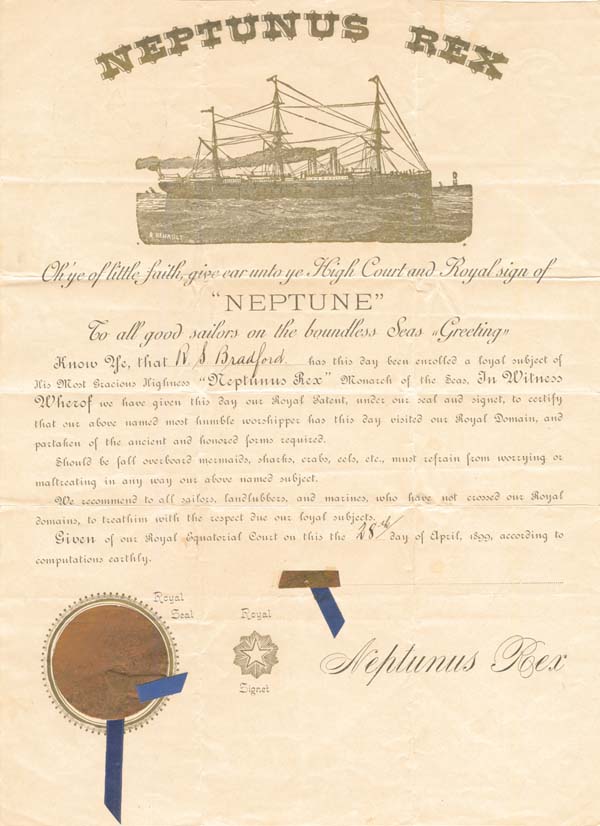 NEPTUNUS REX
A. RENAULT
Oh' ye of little faith, give ear unto ye High Court and Royal sign of
"NEPTUNE"
To all good sailors on the boundless Seas „Greeting„
Know Ye, that R S Bradford has this day been enrolled a loyal subject of
His Most Gracious Highness "Neptunus Rex" Monarch of the Seas. In Witness
Wherof we have given this day our Royal Patent, under our seal and signet, to certify
that our above named most humble worshipper has this day visited our Royal Domain, and
partaken of the ancient and honored forms required.
Should be fall overboard mermaids, sharks, crabs, eels, etc., must refrain from worrying or
maltreating in any way our above named subject.
We recommend to all sailors, landlubbers, and marines, who have not crossed our Royal
domains, to treathim with the respect due our loyal subjects.
Given of our Royal Equatorial Court on this the 28th day of April, 1899, according to
computations earthly.
Royal
Seal
Royal
Signet
Neptunus Rex